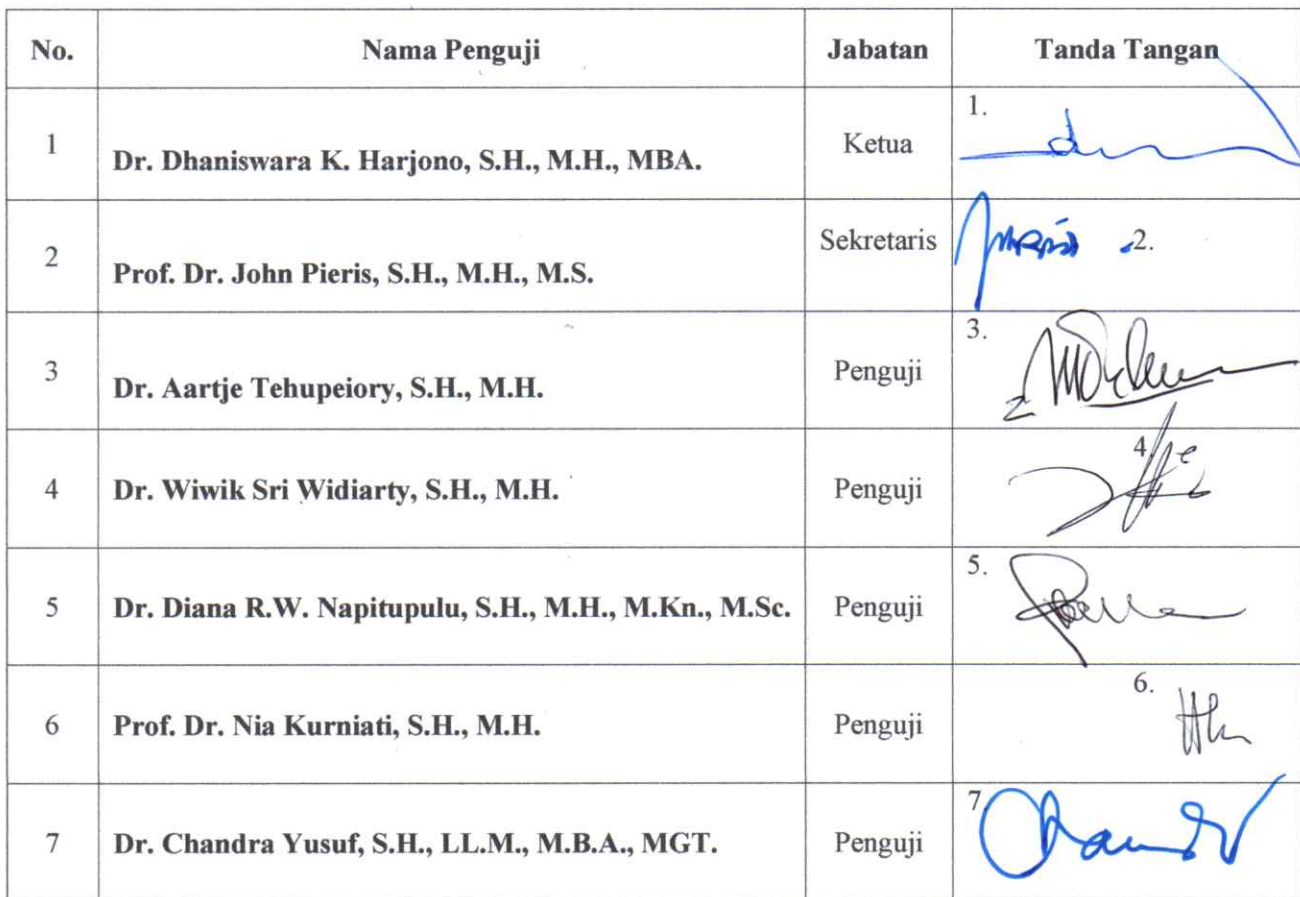 No. Nama Penguji Jabatan Tanda Tangan
1 Dr. Dhaniswara K. Harjono, S.H., M.H., MBA. Ketua 1.
2 Prof. Dr. John Pieris, S.H., M.H., M.S. Sekretaris 2.
3 Dr. Aartje Tehupeiory, S.H., M.H. Penguji 3.
4 Dr. Wiwik Sri Widiarty, S.H., M.H. Penguji 4.
5 Dr. Diana R.W. Napitupulu, S.H., M.H., M.Kn., M.Sc. Penguji 5.
6 Prof. Dr. Nia Kurniati, S.H., M.H. Penguji 6.
7 Dr. Chandra Yusuf, S.H., LL.M., M.B.A., MGT. Penguji 7.